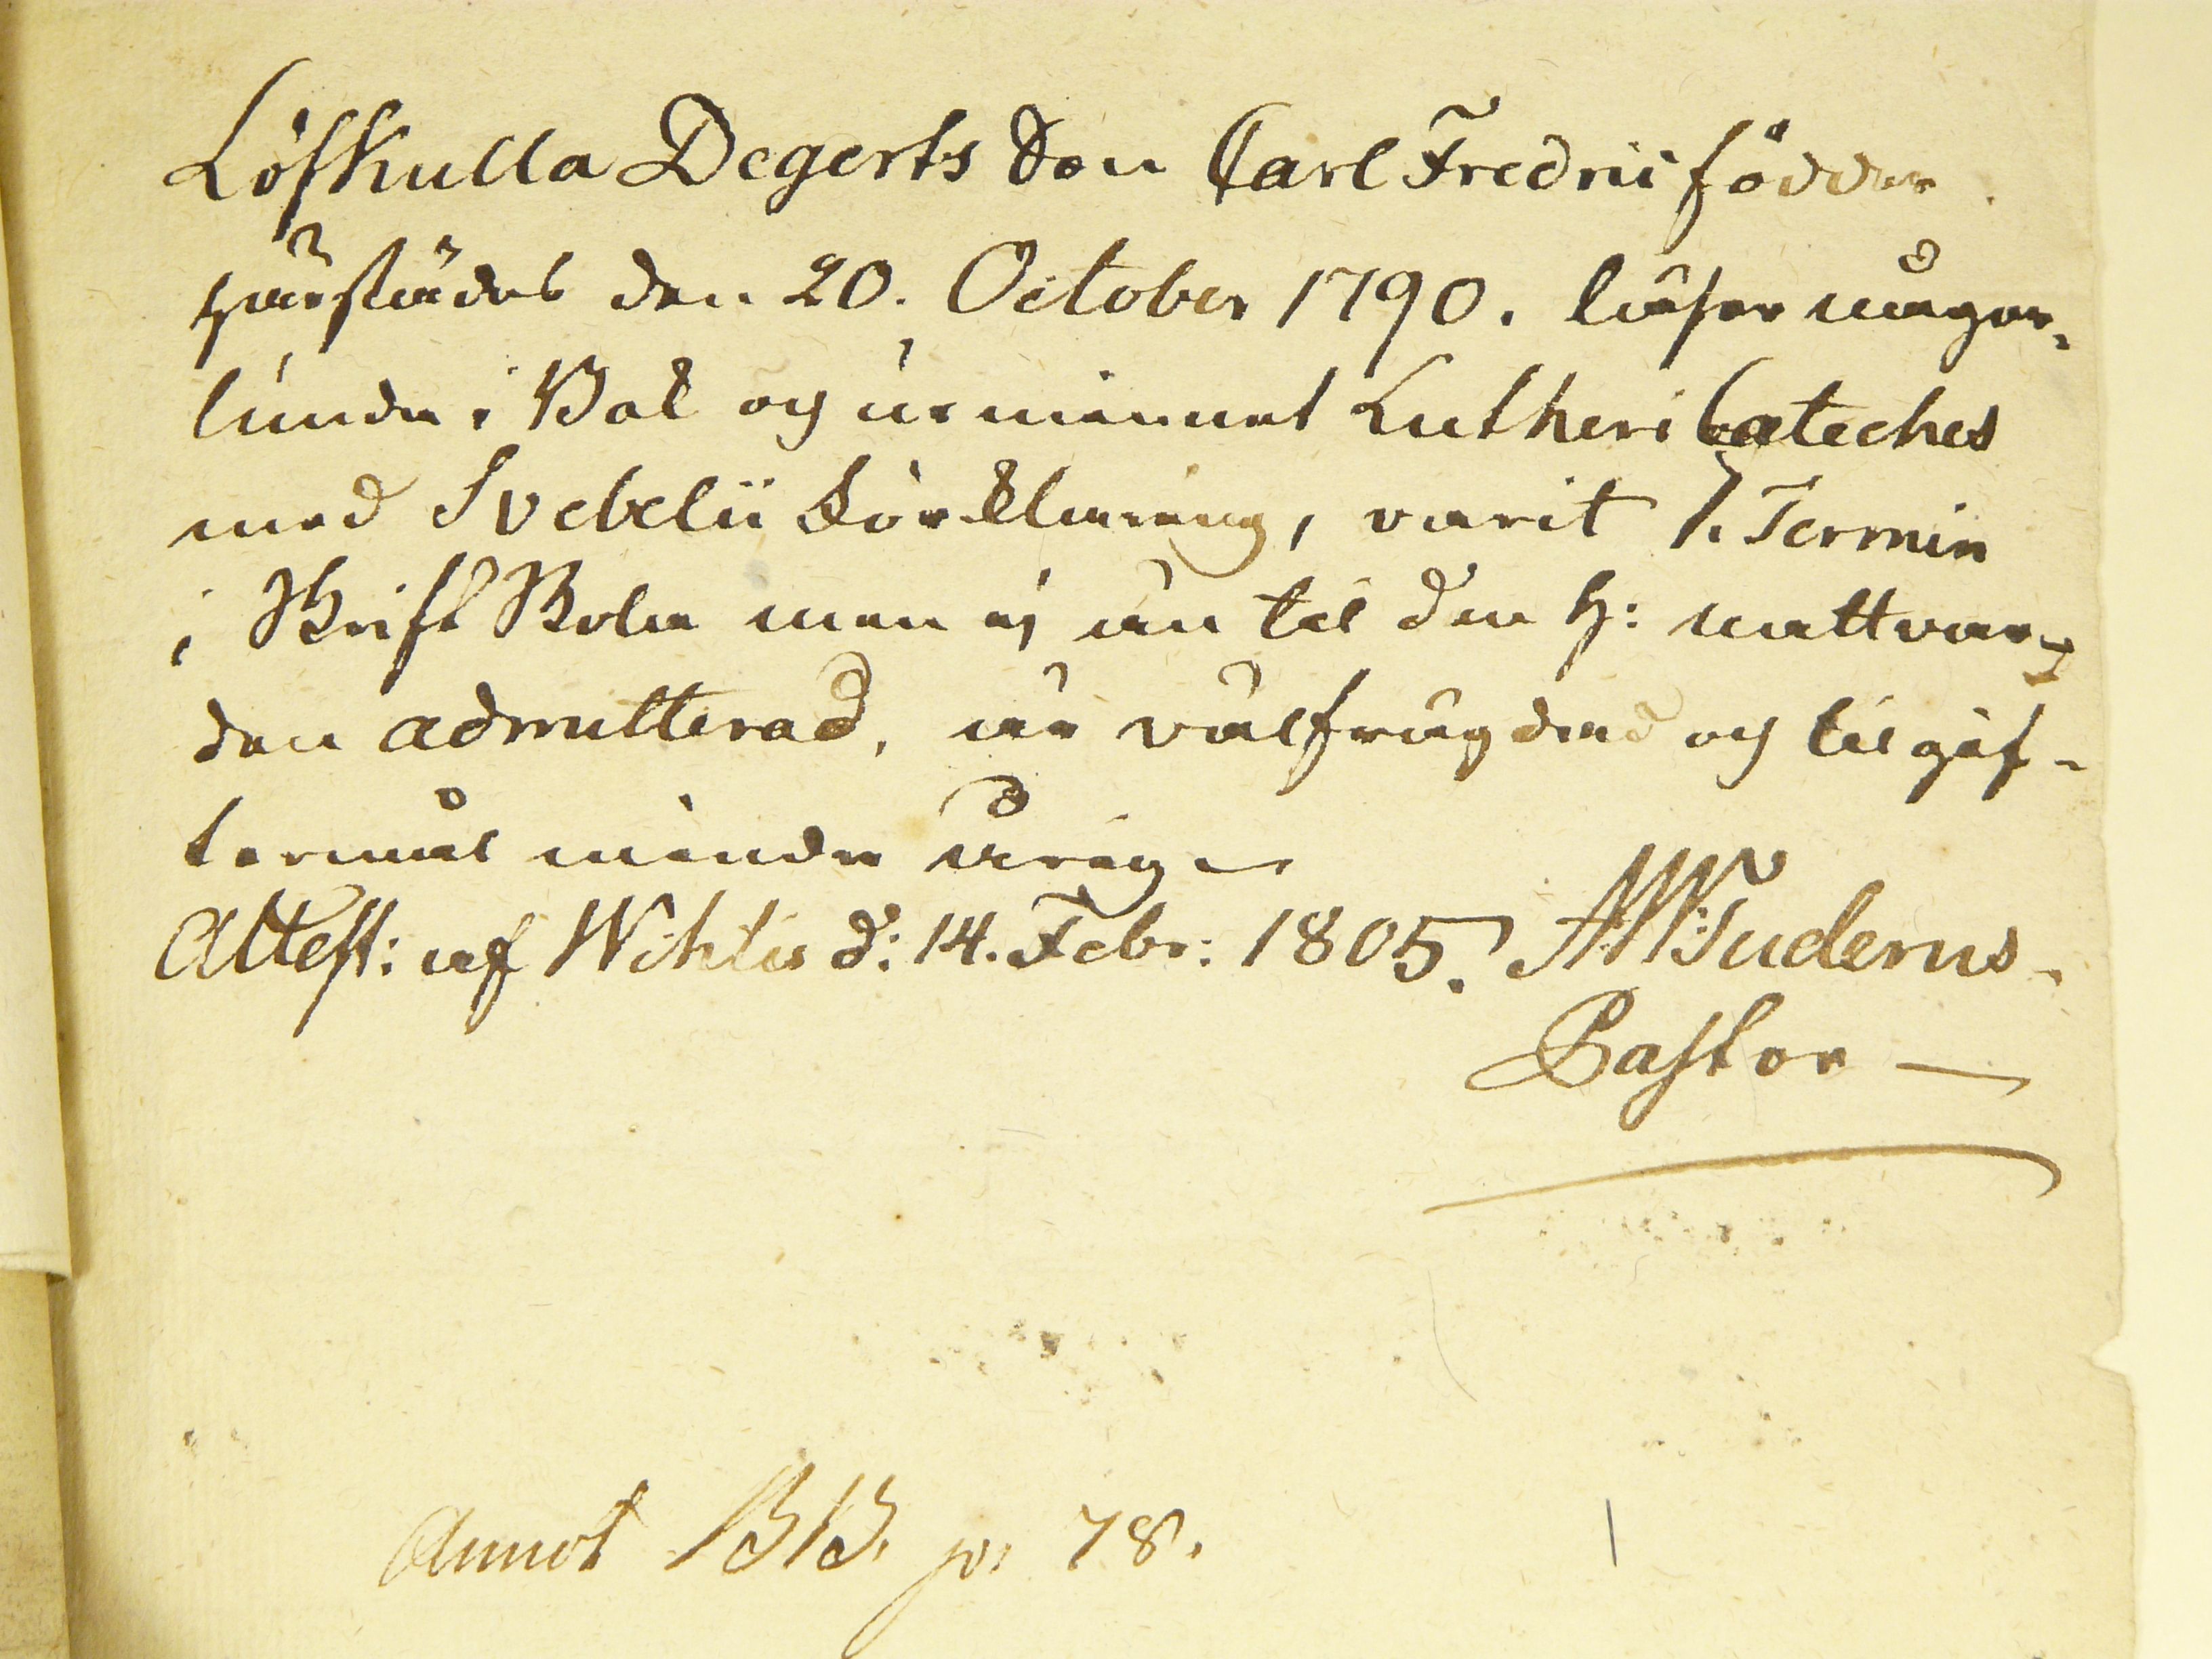 Löfkulla Degerts Son Carl Fredric född
härstädes den 20. October 1790. läser någor-
lunda i Bok och ur minnet Lutheri Cateches
med Svebelii Förklaring, varit 1. Termin
i Skrift Skola men ej än til den H: nattvar-
den admitterad, är välfrägdad och til gif-
termål minderårig
Attest: af Wihtis d: 14. Febr: 1805.
Pastor
Annot BB. p. 78.